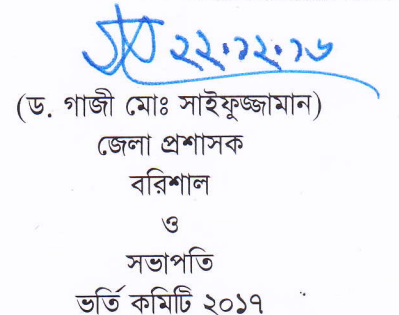 ২২.১২.১৬
(ড. গাজী মোঃ সাইফুজ্জামান)
জেলা প্রশাসক
বরিশাল
ও
সভাপতি
ভর্তি কমিটি ২০১৭